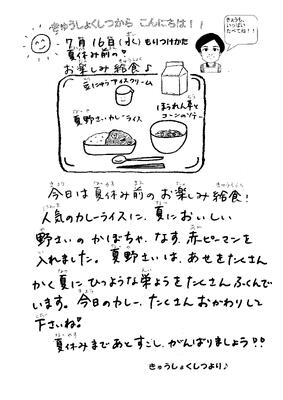 きゅうしょくしつから こんにちは！！
きょうも、
いっぱい
たべてね！！
7月16日(水) もりつけかた
夏休み前の
お楽しみ給食♪
豆にゅうアイスクリーム
ほうれん草と
コーンのソテー
夏野さいカレーライス
今日は夏休み前のお楽しみ給食!
人気のカレーライスに、夏においしい
野さいのかぼちゃ、なす、赤ピーマンを
入れました。夏野さいは、あせをたくさん
かく夏にひつような栄ようをたくさんふくんで
います。今日のカレー、たくさんおかわりして
下さいね!
夏休みまであとすこし、がんばりましょう!!
きゅうしょくしつより♪